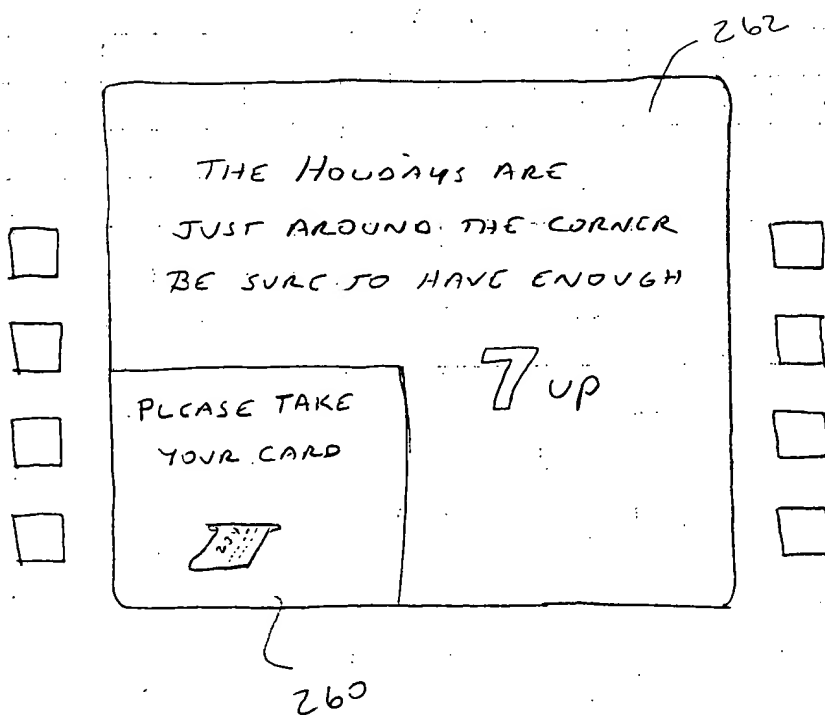 262
THE HOLIDAYS ARE
JUST AROUND THE CORNER
BE SURE TO HAVE ENOUGH
7 UP
PLEASE TAKE
YOUR CARD
260